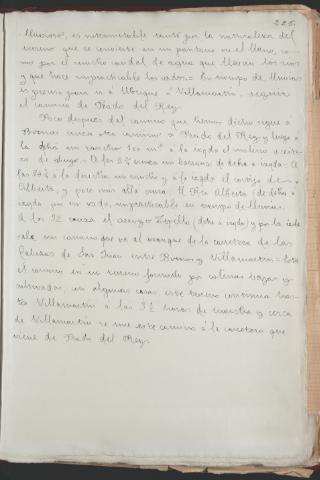 225.
lluvioso, es intransitable tanto por la naturaleza del
terreno que se convierte en un pantano en el llano, co-
mo por el mucho caudal de agua que llevan los rios
y que hace impracticables los vados = En tiempo de lluvias
es preciso para ir á Ubrique ó Villamartin, seguir
el camino de Prado del Rey.
Poco despues del camino que hemos dicho sigue á
Bornos cruza otro camino á Prado del Rey, y luego á
la dcha un rancho 100 mts á la izqda el molino
de alugo = A los 2 ½ cruza un barranco de dcha á izqda = A
la dcha un rancho y á la izqda el cortijo de
Alberite, y poco mas allá cruza el Rio Alberite (de dcha á
izqda por un vado, impracticable en tiempo de lluvias.
A los 32 cruza el arroyo Zopilla (dcha á izqda) y por la izda
sale un camino que va al arranque de la carretera de las
Cabezas de San Juan entre Bornos y Villamartin = Sube
el camino en un terreno formado por colinas bajas y
cultivadas, con algunas casas, este terreno continúa has-
ta Villamartin á las 3 ½ horas de nuestra y cerca
de Villamartin se une este camino á la carretera que
viene de Prado del Rey.